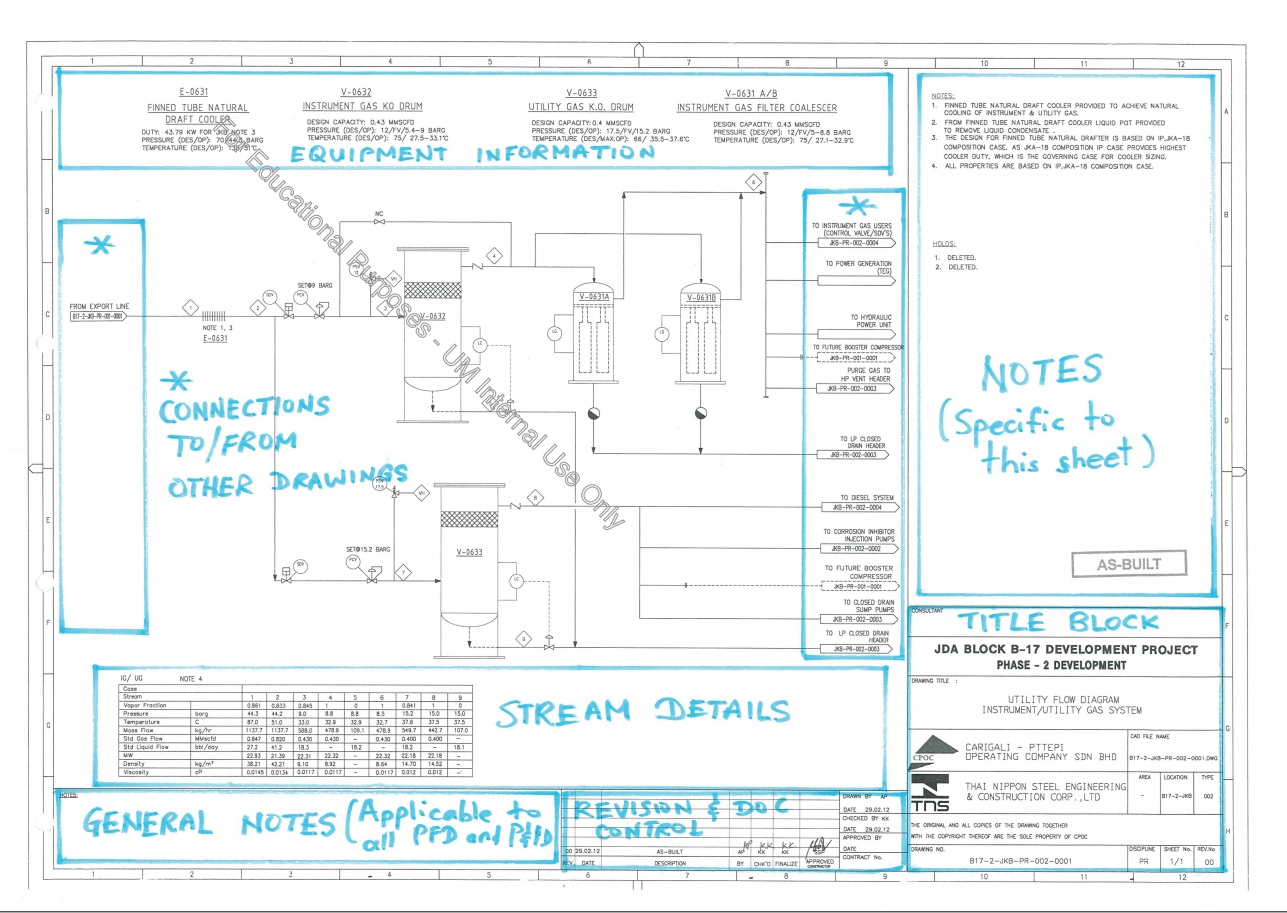 1 2 3 4 5 6 7 8 9 10 11 12
E-0631
FINNED TUBE NATURAL
DRAFT COOLER
DUTY: 43.79 KW FOR JKB NOTE 3
PRESSURE (DES/OP): 70/44.3 BARG
V-0632
INSTRUMENT GAS KO DRUM
DESIGN CAPACITY: 0.43 MMSCFD
PRESSURE (DES/OP): 12/FV/5.4-9 BARG
TEMPERATURE (DES/OP): 75/ 27.5-33.1°C
V-0633
UTILITY GAS K.O. DRUM
DESIGN CAPACITY:0.4 MMSCFD
PRESSURE (DES/OP): 17.5/FV/15.2 BARG
TEMPERATURE (DES/MAX.OP): 66/ 35.5-37.6°C
V-0631 A/B
INSTRUMENT GAS FILTER COALESCER
DESIGN CAPACITY: 0.43 MMSCFD
PRESSURE (DES/OP): 12/FV/5-8.8 BARG
TEMPERATURE (DES/OP): 75/ 27.1-32.9°C
EQUIPMENT INFORMATION
For Educational Purposes - UM Internal Use Only
NOTES:
1. FINNED TUBE NATURAL DRAFT COOLER PROVIDED TO ACHIEVE NATURAL
COOLING OF INSTRUMENT & UTILITY GAS.
2. FROM FINNED TUBE NATURAL DRAFT COOLER LIQUID POT PROVIDED
TO REMOVE LIQUID CONDENSATE .
3. THE DESIGN FOR FINNED TUBE NATURAL DRAFTER IS BASED ON IP,JKA-18
COMPOSITION CASE. AS JKA-18 COMPOSITION IP CASE PROVIDES HIGHEST
COOLER DUTY, WHICH IS THE GOVERNING CASE FOR COOLER SIZING.
4. ALL PROPERTIES ARE BASED ON IP,JKA-18 COMPOSITION CASE.
HOLDS:
1. DELETED.
2. DELETED.
NOTES
(Specific to
this sheet)
AS-BUILT
A
B
C
D
E
F
G
H
*
*
CONNECTIONS
TO/FROM
OTHER DRAWINGS
*
FROM EXPORT LINE
B17-2-JKB-PR-001-0001
1
NOTE 1, 3
E-0631
2
SDV
SET@9 BARG
PCV
NC
PSV
12
VH
3
V-0632
LC
4
V-0631A
LG
V-0631B
LG
6
TO INSTRUMENT GAS USERS
(CONTROL VALVE/SDV'S)
JKB-PR-002-0004
TO POWER GENERATION
(TEG)
TO HYDRAULIC
POWER UNIT
TO FUTURE BOOSTER COMPRESSOR
JKB-PR-001-0001
PURGE GAS TO
HP VENT HEADER
JKB-PR-002-0003
TO LP CLOSED
DRAIN HEADER
JKB-PR-002-0003
PSV
17.5
VH
SDV
SET@15.2 BARG
PCV
7
V-0633
LC
8
9
TO DIESEL SYSTEM
JKB-PR-002-0004
TO CORROSION INHIBITOR
INJECTION PUMPS
JKB-PR-002-0002
TO FUTURE BOOSTER
COMPRESSOR
JKB-PR-001-0001
TO CLOSED DRAIN
SUMP PUMPS
JKB-PR-002-0003
TO LP CLOSED DRAIN
HEADER
JKB-PR-002-0003
IG/ UG NOTE 4
Case
Stream 1 2 3 4 5 6 7 8 9
Vapor Fraction 0.861 0.833 0.845 1 0 1 0.841 1 0
Pressure barg 44.3 44.2 9.0 8.8 8.8 8.5 15.2 15.0 15.0
Temperature C 87.0 51.0 33.0 32.9 32.9 32.7 37.6 37.5 37.5
Mass Flow kg/hr 1137.7 1137.7 588.0 478.9 109.1 478.9 549.7 442.7 107.0
Std Gas Flow MMscfd 0.847 0.820 0.430 0.430 - 0.430 0.400 0.400 -
Std Liquid Flow bbl/day 27.2 41.2 18.3 - 18.2 - 18.2 - 18.1
MW 22.93 21.39 22.31 22.32 - 22.32 22.18 22.18 -
Density kg/m³ 38.21 42.21 9.10 8.92 - 8.64 14.70 14.52 -
Viscosity cP 0.0145 0.0134 0.0117 0.0117 - 0.0117 0.012 0.012 -
STREAM DETAILS
NOTES:
GENERAL NOTES (Applicable to
all PFD and P&ID)
REVISION & DOC
CONTROL
00 29.02.12 AS-BUILT AP KK KK
REV. DATE DESCRIPTION BY CHK'D FINALIZE APPROVED
DRAWN BY AP
DATE 29.02.12
CHECKED BY KK
DATE 29.02.12
APPROVED BY
DATE
CONTRACT No.
CONSULTANT
TITLE BLOCK
JDA BLOCK B-17 DEVELOPMENT PROJECT
PHASE - 2 DEVELOPMENT
DRAWING TITLE :
UTILITY FLOW DIAGRAM
INSTRUMENT/UTILITY GAS SYSTEM
CPOC
CARIGALI - PTTEPI
OPERATING COMPANY SDN BHD
CAD FILE NAME
B17-2-JKB-PR-002-0001.DWG
TNS
THAI NIPPON STEEL ENGINEERING
& CONSTRUCTION CORP.,LTD
AREA LOCATION TYPE
- B17-2-JKB 002
THE ORIGINAL AND ALL COPIES OF THE DRAWING TOGETHER
WITH THE COPYRIGHT THEREOF ARE THE SOLE PROPERTY OF CPOC
DRAWING NO. DISCIPLINE SHEET No. REV.No
B17-2-JKB-PR-002-0001 PR 1/1 00
1 2 3 4 5 6 7 8 9 10 11 12